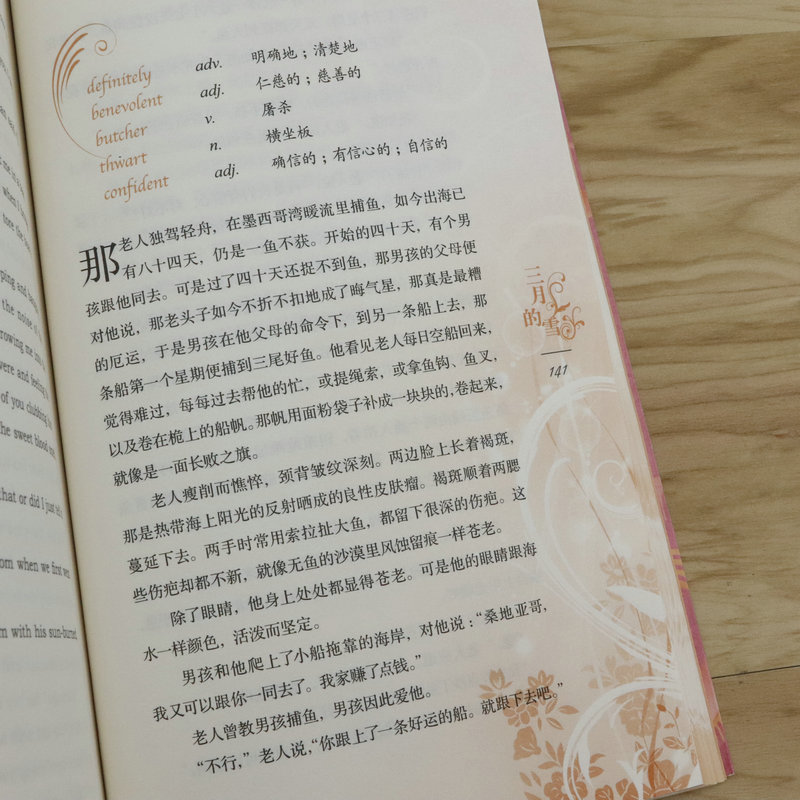 definitely adv. 明确地；清楚地
benevolent adj. 仁慈的；慈善的
butcher v. 屠杀
thwart n. 横坐板
confident adj. 确信的；有信心的；自信的
那老人独驾轻舟，在墨西哥湾暖流里捕鱼，如今出海已
有八十四天，仍是一鱼不获。开始的四十天，有个男
孩跟他同去。可是过了四十天还捉不到鱼，那男孩的父母便
对他说，那老头子如今不折不扣地成了晦气星，那真是最糟
的厄运，于是男孩在他父母的命令下，到另一条船上去，那
条船第一个星期便捕到三尾好鱼。他看见老人每日空船回来，
觉得难过，每每过去帮他的忙，或提绳索，或拿鱼钩、鱼叉，
以及卷在桅上的船帆。那帆用面粉袋子补成一块块的，卷起来，
就像是一面长败之旗。
老人瘦削而憔悴，颈背皱纹深刻。两边脸上长着褐斑，
那是热带海上阳光的反射晒成的良性皮肤瘤。褐斑顺着两腮
蔓延下去。两手时常用索拉扯大鱼，都留下很深的伤疤。这
些伤疤却都不新，就像无鱼的沙漠里风蚀留痕一样苍老。
除了眼睛，他身上处处都显得苍老。可是他的眼睛跟海
水一样颜色，活泼而坚定。
男孩和他爬上了小船拖靠的海岸，对他说：“桑地亚哥，
我又可以跟你一同去了。我家赚了点钱。”
老人曾教男孩捕鱼，男孩因此爱他。
“不行，”老人说，“你跟上了一条好运的船。就跟下去吧。”
三月的雪
141
ping and
the noise of
rowing me into
were and feeling
of you clubbing
the sweet blood
that or did I just
om when we first
m with his sun-burned